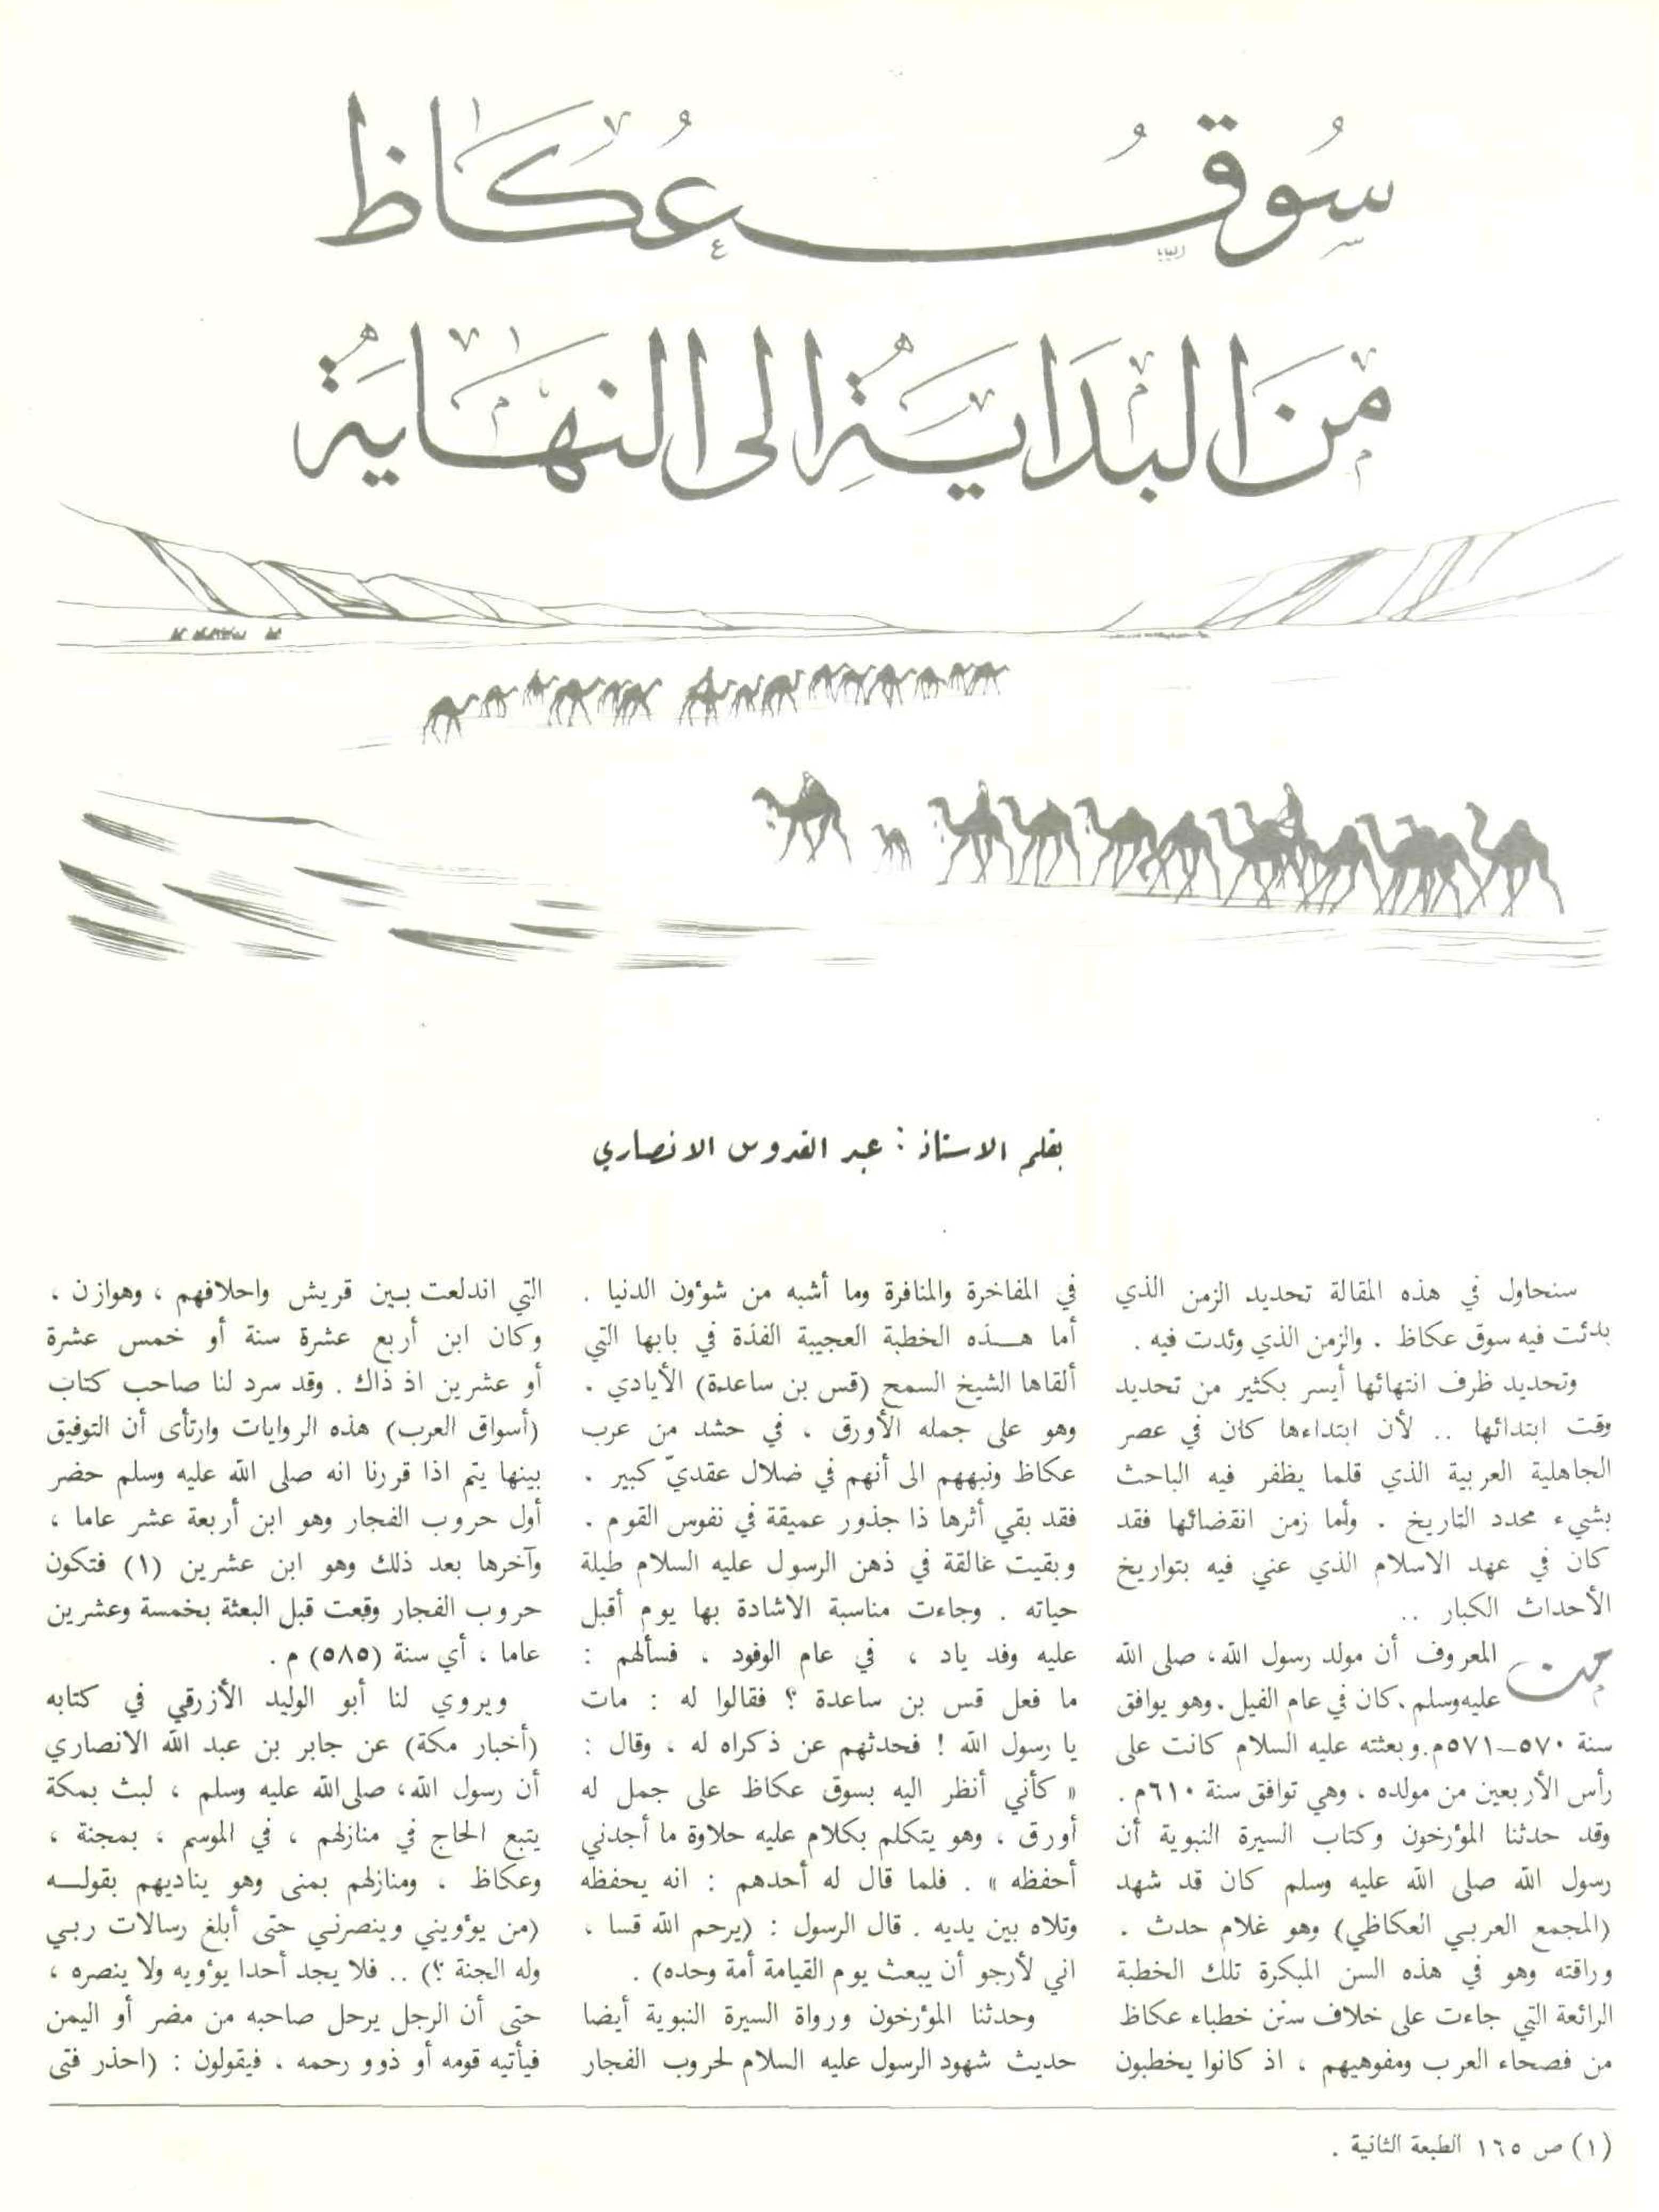 سُوقُ عُكَاظ
مِنَ الْبِدَايَةِ إِلَى النِّهَايَة
بقلم الاستاذ : عبد القدوس الانصاري
سنحاول في هذه المقالة تحديد الزمن الذي
بدئت فيه سوق عكاظ . والزمن الذي وئدت فيه .
وتحديد ظرف انتهائها أيسر بكثير من تحديد
وقت ابتدائها .. لأن ابتداءها كان في عصر
الجاهلية العربية الذي قلما يظفر فيه الباحث
بشيء محدد التاريخ . وأما زمن انقضائها فقد
كان في عهد الاسلام الذي عني فيه بتواريخ
الأحداث الكبار ..
من المعروف أن مولد رسول الله، صلى الله
عليه وسلم . كان في عام الفيل . وهو يوافق
سنة ٥٧٠–٥٧١م. وبعثته عليه السلام كانت على
رأس الأربعين من مولده ، وهي توافق سنة ٦١٠م .
وقد حدثنا المؤرخون وكتاب السيرة النبوية أن
رسول الله صلى الله عليه وسلم كان قد شهد
(المجمع العربي العكاظي) وهو غلام حدث .
وراقته وهو في هذه السن المبكرة تلك الخطبة
الرائعة التي جاءت على خلاف سنن خطباء عكاظ
من فصحاء العرب ومفوهيهم ، اذ كانوا يخطبون
في المفاخرة والمنافرة وما أشبه من شؤون الدنيا .
أما هـذه الخطبة العجيبة الفذة في بابها التي
ألقاها الشيخ السمح (قس بن ساعدة) الأيادي .
وهو على جمله الأورق ، في حشد من عرب
عكاظ ونبههم الى أنهم في ضلال عقديّ كبير .
فقد بقي أثرها ذا جذور عميقة في نفوس القوم .
وبقيت عالقة في ذهن الرسول عليه السلام طيلة
حياته . وجاءت مناسبة الاشادة بها يوم أقبل
عليه وفد ياد ، في عام الوفود ، فسألهم :
ما فعل قس بن ساعدة ؟ فقالوا له : مات
يا رسول الله ! فحدثهم عن ذكراه له ، وقال :
« كأني أنظر اليه بسوق عكاظ على جمل له
أورق ، وهو يتكلم بكلام عليه حلاوة ما أجدني
أحفظه » . فلما قال له أحدهم : انه يحفظه
وتلاه بين يديه . قال الرسول : (يرحم الله قسا ،
اني لأرجو أن يبعث يوم القيامة أمة وحده) .
وحدثنا المؤرخون ورواة السيرة النبوية أيضا
حديث شهود الرسول عليه السلام لحروب الفجار
التي اندلعت بـين قريش واحلافهم ، وهوازن ،
وكان ابن أربع عشرة سنة أو خمس عشرة
أو عشرين اذ ذاك . وقد سرد لنا صاحب كتاب
(أسواق العرب) هذه الروايات وارتأى أن التوفيق
بينها يتم اذا قررنا انه صلى الله عليه وسلم حضر
أول حروب الفجار وهو ابن أربعة عشر عاما ،
وآخرها بعد ذلك وهو ابن عشرين (١) فتكون
حروب الفجار وقعت قبل البعثة بخمسة وعشرين
عاما ، أي سنة (٥٨٥) م .
ويروي لنا أبو الوليد الأزرقي في كتابه
(أخبار مكة) عن جابر بن عبد الله الانصاري
أن رسول الله، صلى الله عليه وسلم ، لبث بمكة
يتبع الحاج في منازلهم ، في الموسم ، بمجنة ،
وعكاظ ، ومنازلهم بمنى وهو يناديهم بقولـه
(من يؤويني وينصرني حتى أبلغ رسالات ربي
وله الجنة ؟) .. فلا يجد أحدا يؤويه ولا ينصره ،
حتى أن الرجل يرحل صاحبه من مضر أو اليمن
فيأتيه قومه أو ذوو رحمه ، فيقولون : (احذر فتى
(١) ص ١٦٥ الطبعة الثانية .